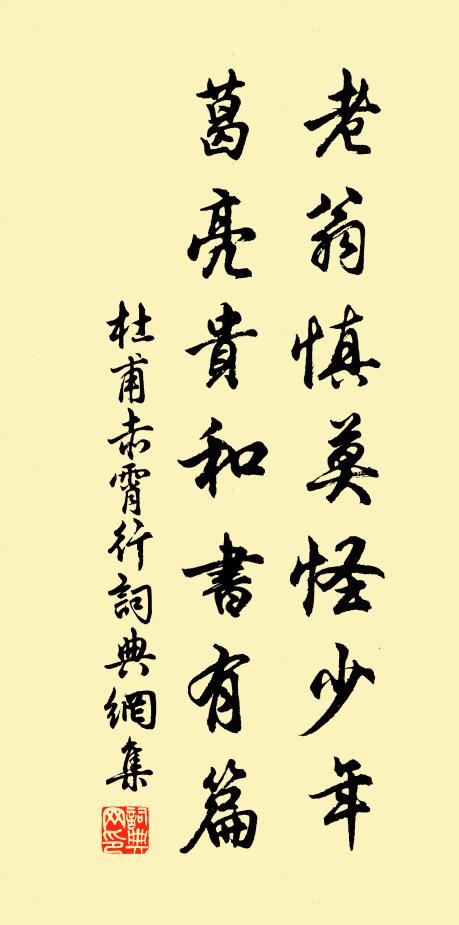 老翁慎莫怪少年
葛亮貴和書有篇
杜甫赤霄行詞典網集
詞典网印